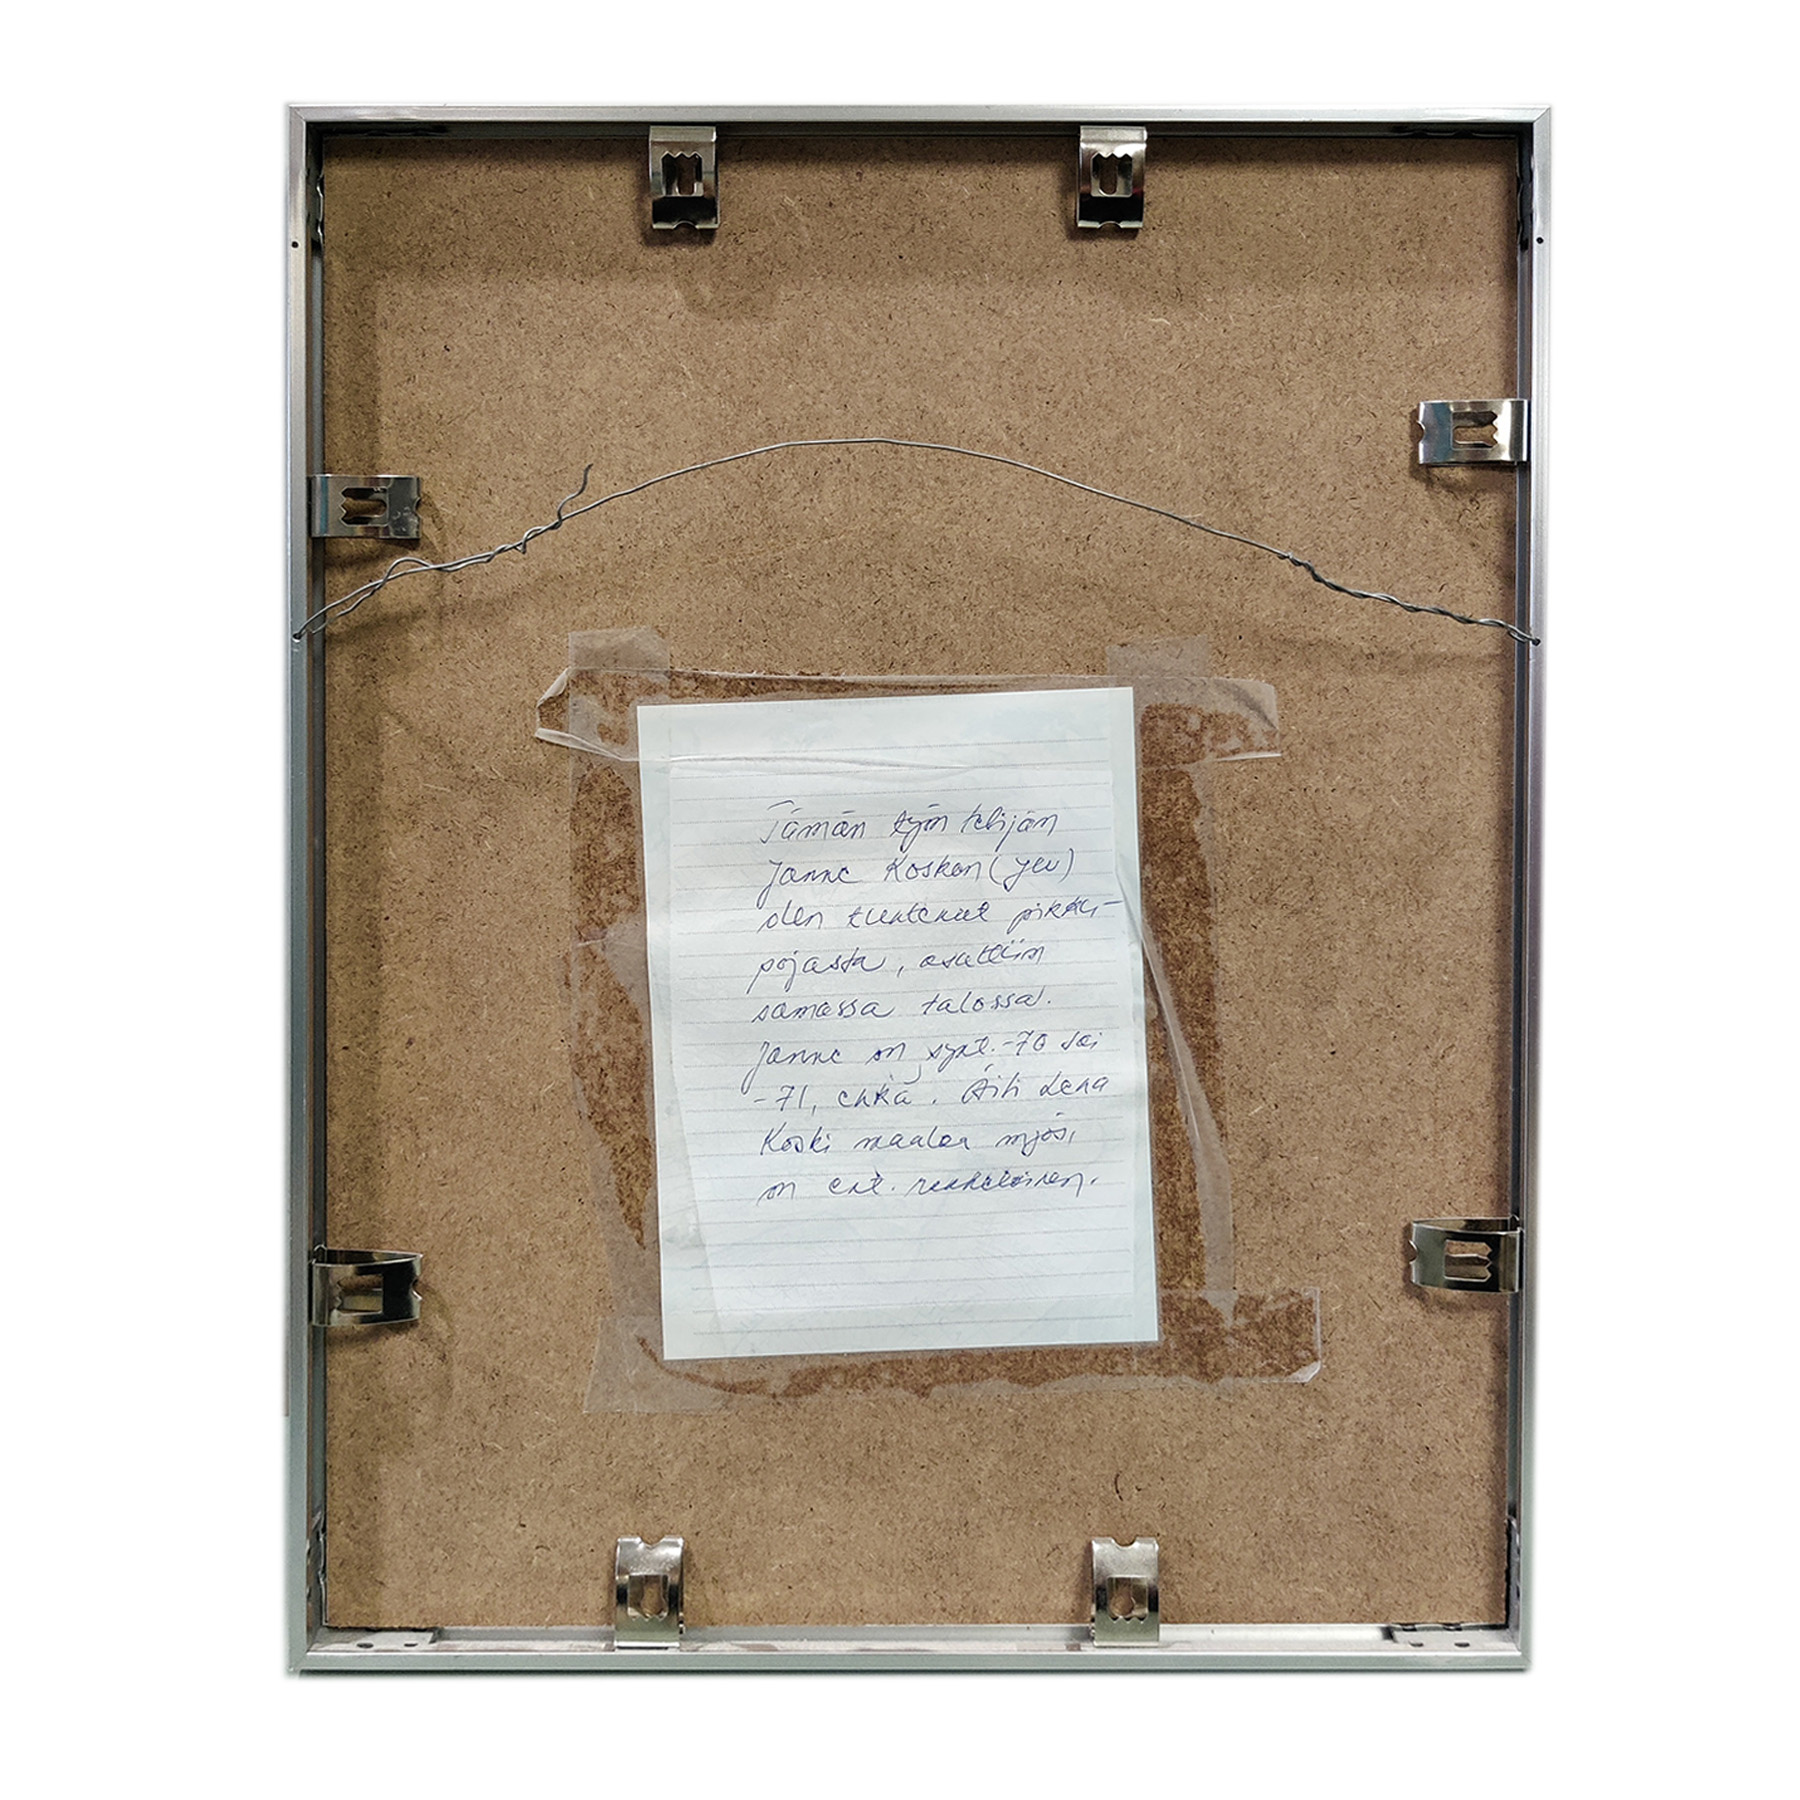 Tämän työn tekijän
Janne Kosken (yev)
olen tuntenut pikku-
pojasta, asuttiin
samassa talossa.
Janne on synt. -70 tai
-71, ehkä. Äiti Lena
Koski maalaa myös,
on ent. renkeläinen.